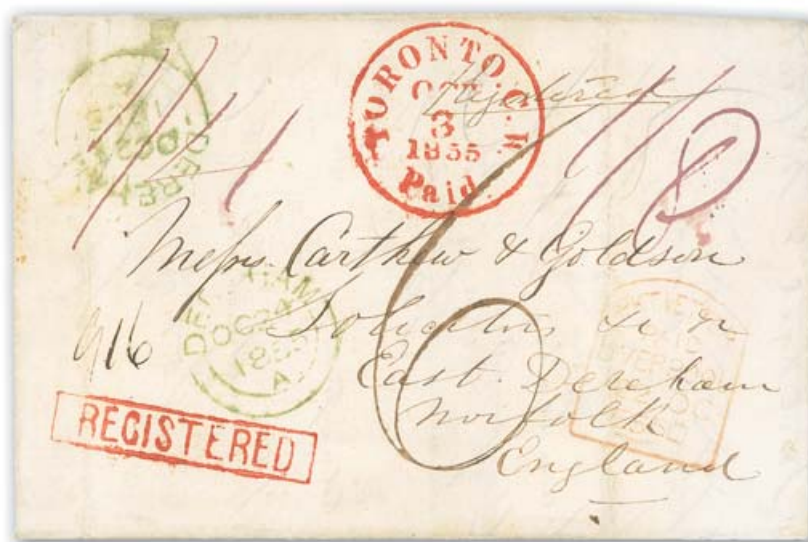 TORONTO C.W.
OCT
3
1855
Paid
Registered
1/8
6
Messrs. Carthew & Goldson
Solicitors &c &c
East Dereham
Norfolk
England
DEREHAM
OC 24
1855
A
916
REGISTERED